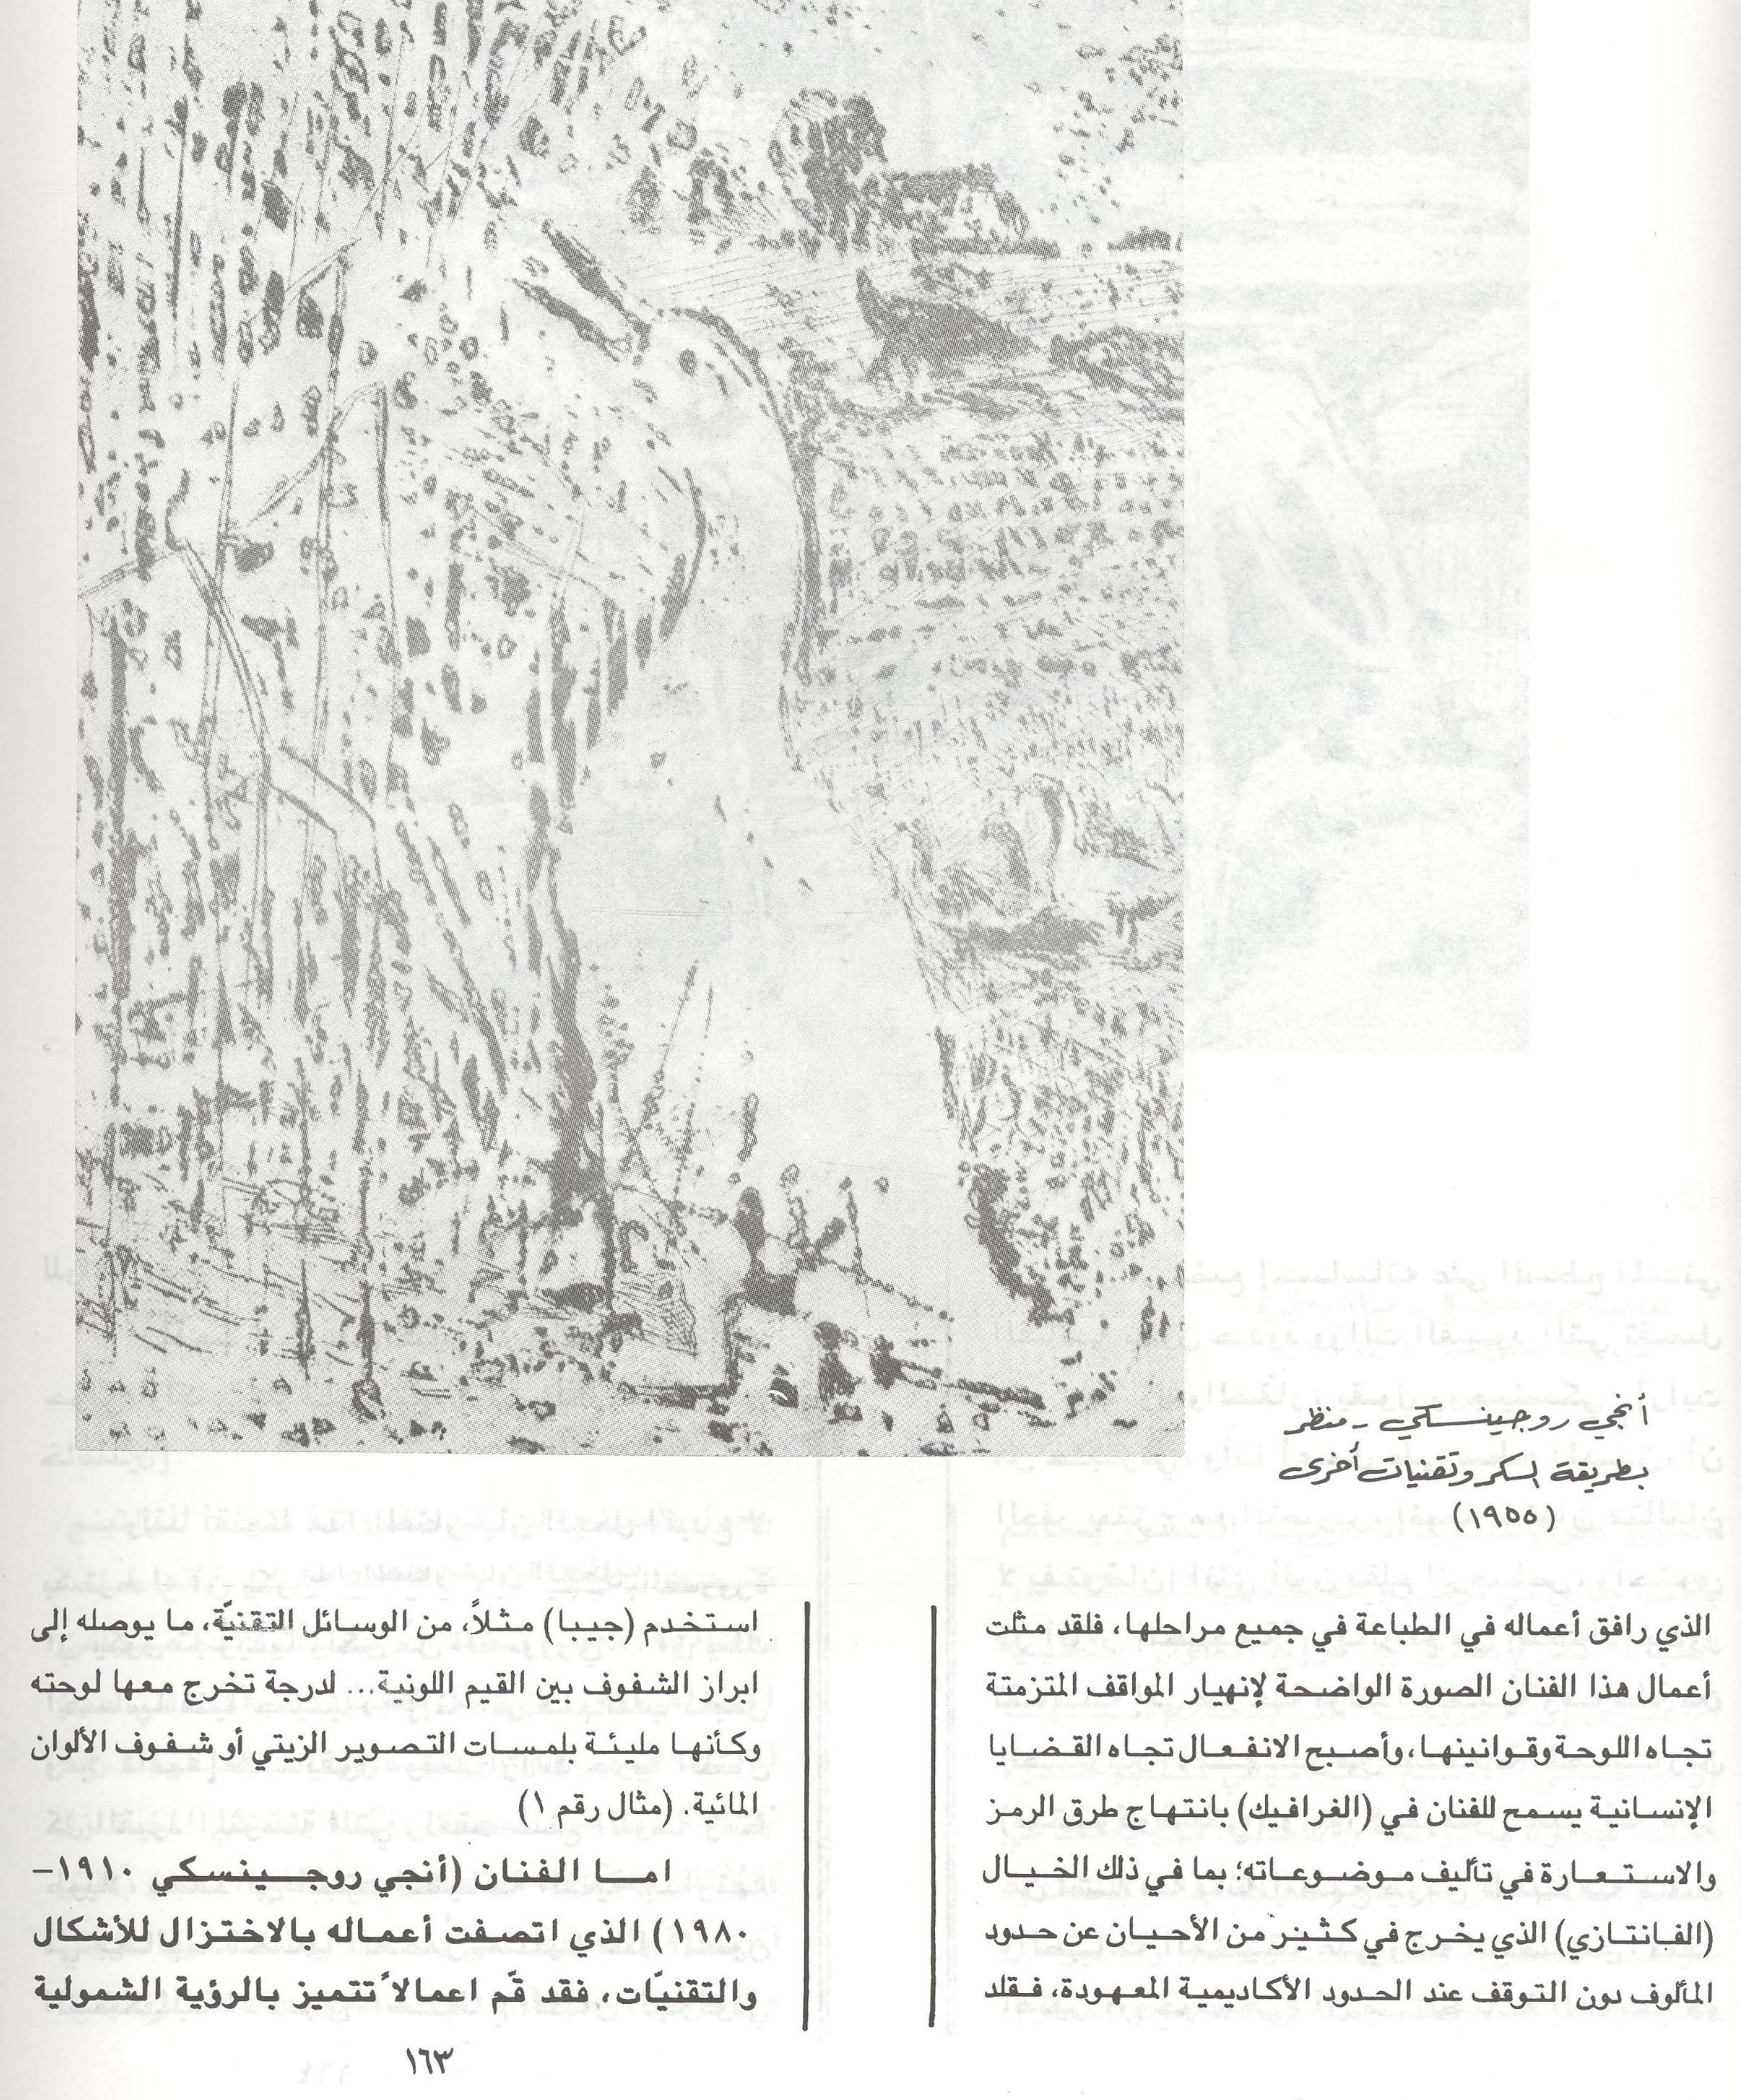 أنجي روجينسكي - منظر
بطريقة السكر وتقنيات أخرى
(١٩٥٥)
الذي رافق أعماله في الطباعة في جميع مراحلها، فلقد مثلت
أعمال هذا الفنان الصورة الواضحة لإنهيار المواقف المتزمتة
تجاه اللوحة وقوانينها، وأصبح الانفعال تجاه القضايا
الإنسانية يسمح للفنان في (الغرافيك) بانتهاج طرق الرمز
والاستعارة في تأليف موضوعاته؛ بما في ذلك الخيال
(الفانتازي) الذي يخرج في كثير من الأحيان عن حدود
المألوف دون التوقف عند الحدود الأكاديمية المعهودة، فقلد
استخدم (جيبا) مثلاً، من الوسائل التقنيّة، ما يوصله إلى
ابراز الشفوف بين القيم اللونية... لدرجة تخرج معها لوحته
وكأنها مليئة بلمسات التصوير الزيتي أو شفوف الألوان
المائية. (مثال رقم ١)
اما الفنان (أنجي روجينسكي ١٩١٠–
١٩٨٠) الذي اتصفت أعماله بالاختزال للأشكال
والتقنيّات، فقد قّم اعمالاً تتميز بالرؤية الشمولية
١٦٣